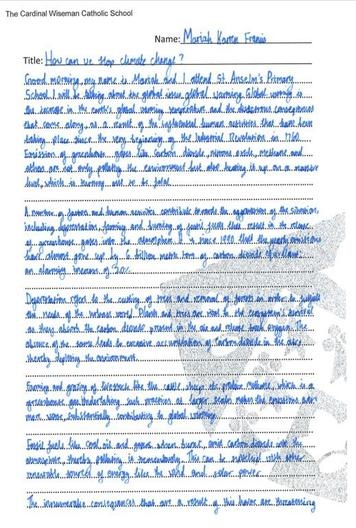 The Cardinal Wiseman Catholic School
Name: Mariah Karen Francis
Title: How can we stop climate change?
Good morning, my name is Mariah and I attend St Anselm's Primary
School. I will be talking about the global issue, global warming. Global warming is
the increase in the earth's global warming temperature and the disastrous consequences
that come along as a result of the human activities that have been
taking place since the very beginning of the Industrial Revolution in 1760.
Emission of greenhouse gases like carbon dioxide, nitrous oxide, methane and
others are not only polluting the environment but also heating it up on a massive
level, which is turning out to be fatal.
A number of factors and human activities contribute towards the aggravation of the situation,
including deforestation, farming and burning of fossil fuels that result in the release
of greenhouse gases into the atmosphere. since 1990 that the yearly emissions
have almost gone up by 6 billion metric tons of carbon dioxide
an alarming increase of 20%.
Deforestation refers to the cutting of trees and removal of forests in order to
the needs of the urban world. Plants and trees are vital to the ecosystem's survival
as they absorb the carbon dioxide present in the air and release back oxygen. The
absence of the same leads to excessive accumulation of carbon dioxide in the air,
thereby the environment.
Farming and grazing of livestock like the cattle, sheep etc. produce methane, which is a
greenhouse gas. such practices at larger scales makes the conditions even
more worse, substantially contributing to global warming.
Fossil fuels like coal, oil and gases when burnt, emit carbon dioxide into the
thereby polluting it This can be replaced with other
renewable sources of energy like the wind and solar power.
The innumerable consequences that are a result of this havoc are threatening